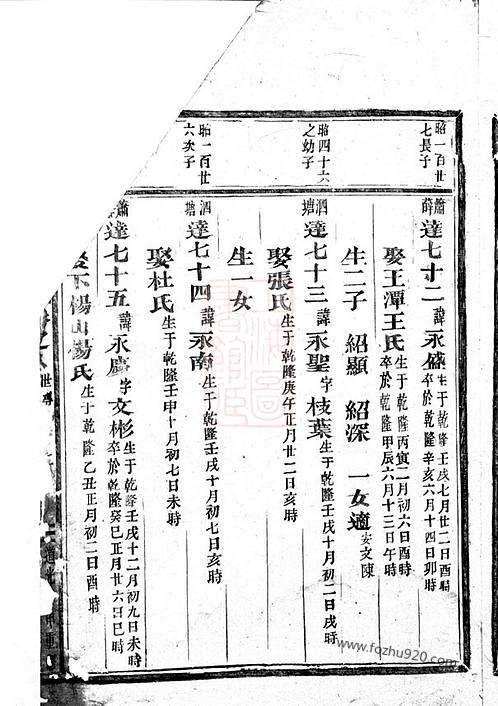 昭一百廿七長子
簫薛達七十二諱永盛生于乾隆壬戌七月廿二日酉時卒於乾隆辛亥六月十四日卯時
娶王潭王氏生于乾隆丙寅二月初六日酉時卒於乾隆甲辰六月十三日午時
生二子 紹顯 紹深 一女適安文陳
昭四十六之幼子
泗塘達七十三諱永聖字枝葉生于乾隆壬戌十月初二日戌時
娶張氏生于乾隆庚午正月廿二日亥時
生一女
昭一百廿六次子
泗塘達七十四諱永南生于乾隆壬戌十月初七日亥時
娶杜氏生于乾隆壬申十月初七日未時
簫達七十五諱永廣字文彬生于乾隆壬戌十二月初九日未時卒於乾隆癸巳正月廿六日巳時
楊氏生于乾隆乙丑正月初二日酉時
世傳
www.fozhu920.com